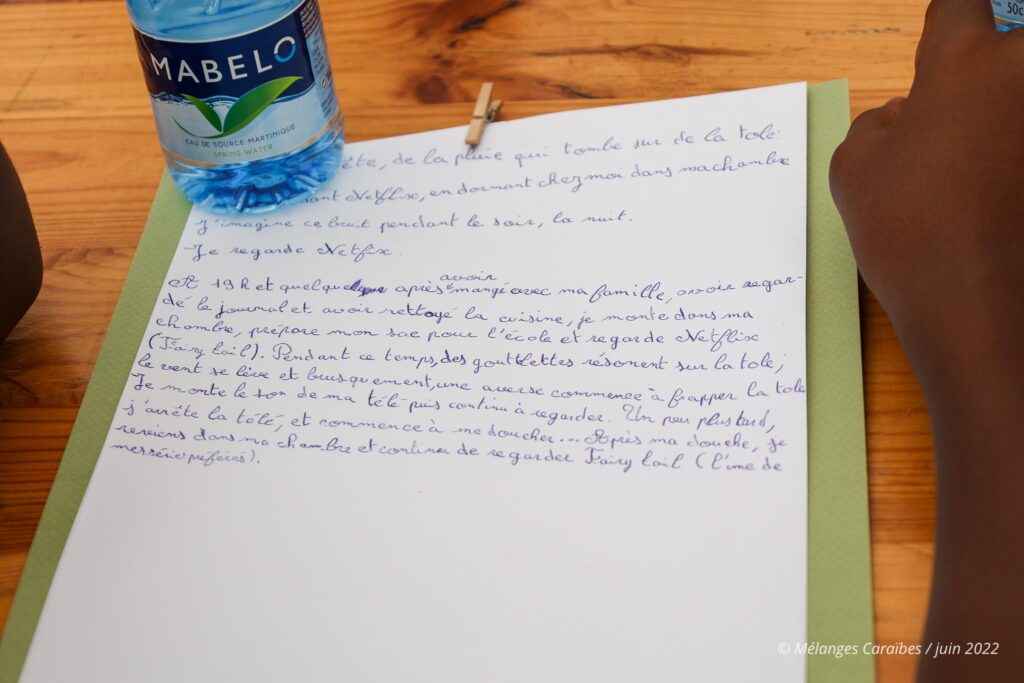 MABELO
EAU DE SOURCE MARTINIQUE
SPRING WATER
50c
ête, de la pluie qui tombe sur de la tole:
ant Netflix, en dormant chez moi dans ma chambre
J'imagine ce bruit pendant le soir, la nuit.
Je regarde Netfix.
avoir
At 19 h et quelque après mangé avec ma famille, avoir regar-
dé le journal et avoir nettoyé la cuisine, je monte dans ma
chambre, prépare mon sac pour l'école et regarde Netflix
(Fairy tail). Pendant ce temps, des gouttelettes résonent sur la tole,
le vent se lève et brusquement, une averse commence à frapper la tole
Je monte le son de ma télé puis continu à regarder. Un peu plus tard,
j'arrête la télé, et commence à me doucher... Après ma douche, je
reviens dans ma chambre et continu de regarder Fairy tail (l'une de
mes série préférés).
© Mélanges Caraïbes / juin 2022